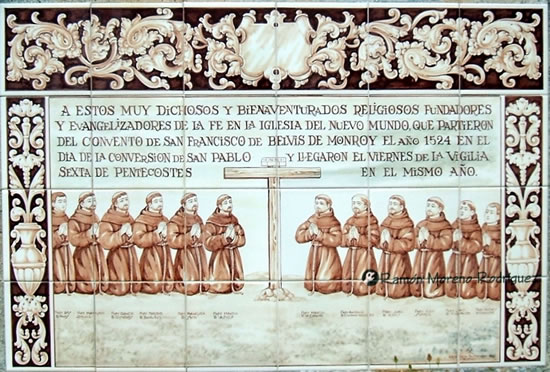 A ESTOS MUY DICHOSOS Y BIENAVENTURADOS RELIGIOSOS FUNDADORES
Y EVANGELIZADORES DE LA FE EN LA IGLESIA DEL NUEVO MUNDO, QUE PARTIERON
DEL CONVENTO DE SAN FRANCISCO DE BELVIS DE MONROY EL AÑO 1524 EN EL
DIA DE LA CONVERSION DE SAN PABLO Y LLEGARON EL VIERNES DE LA VIGILIA
SEXTA DE PENTECOSTES EN EL MISMO AÑO.
© Ramón Moreno Rodríguez